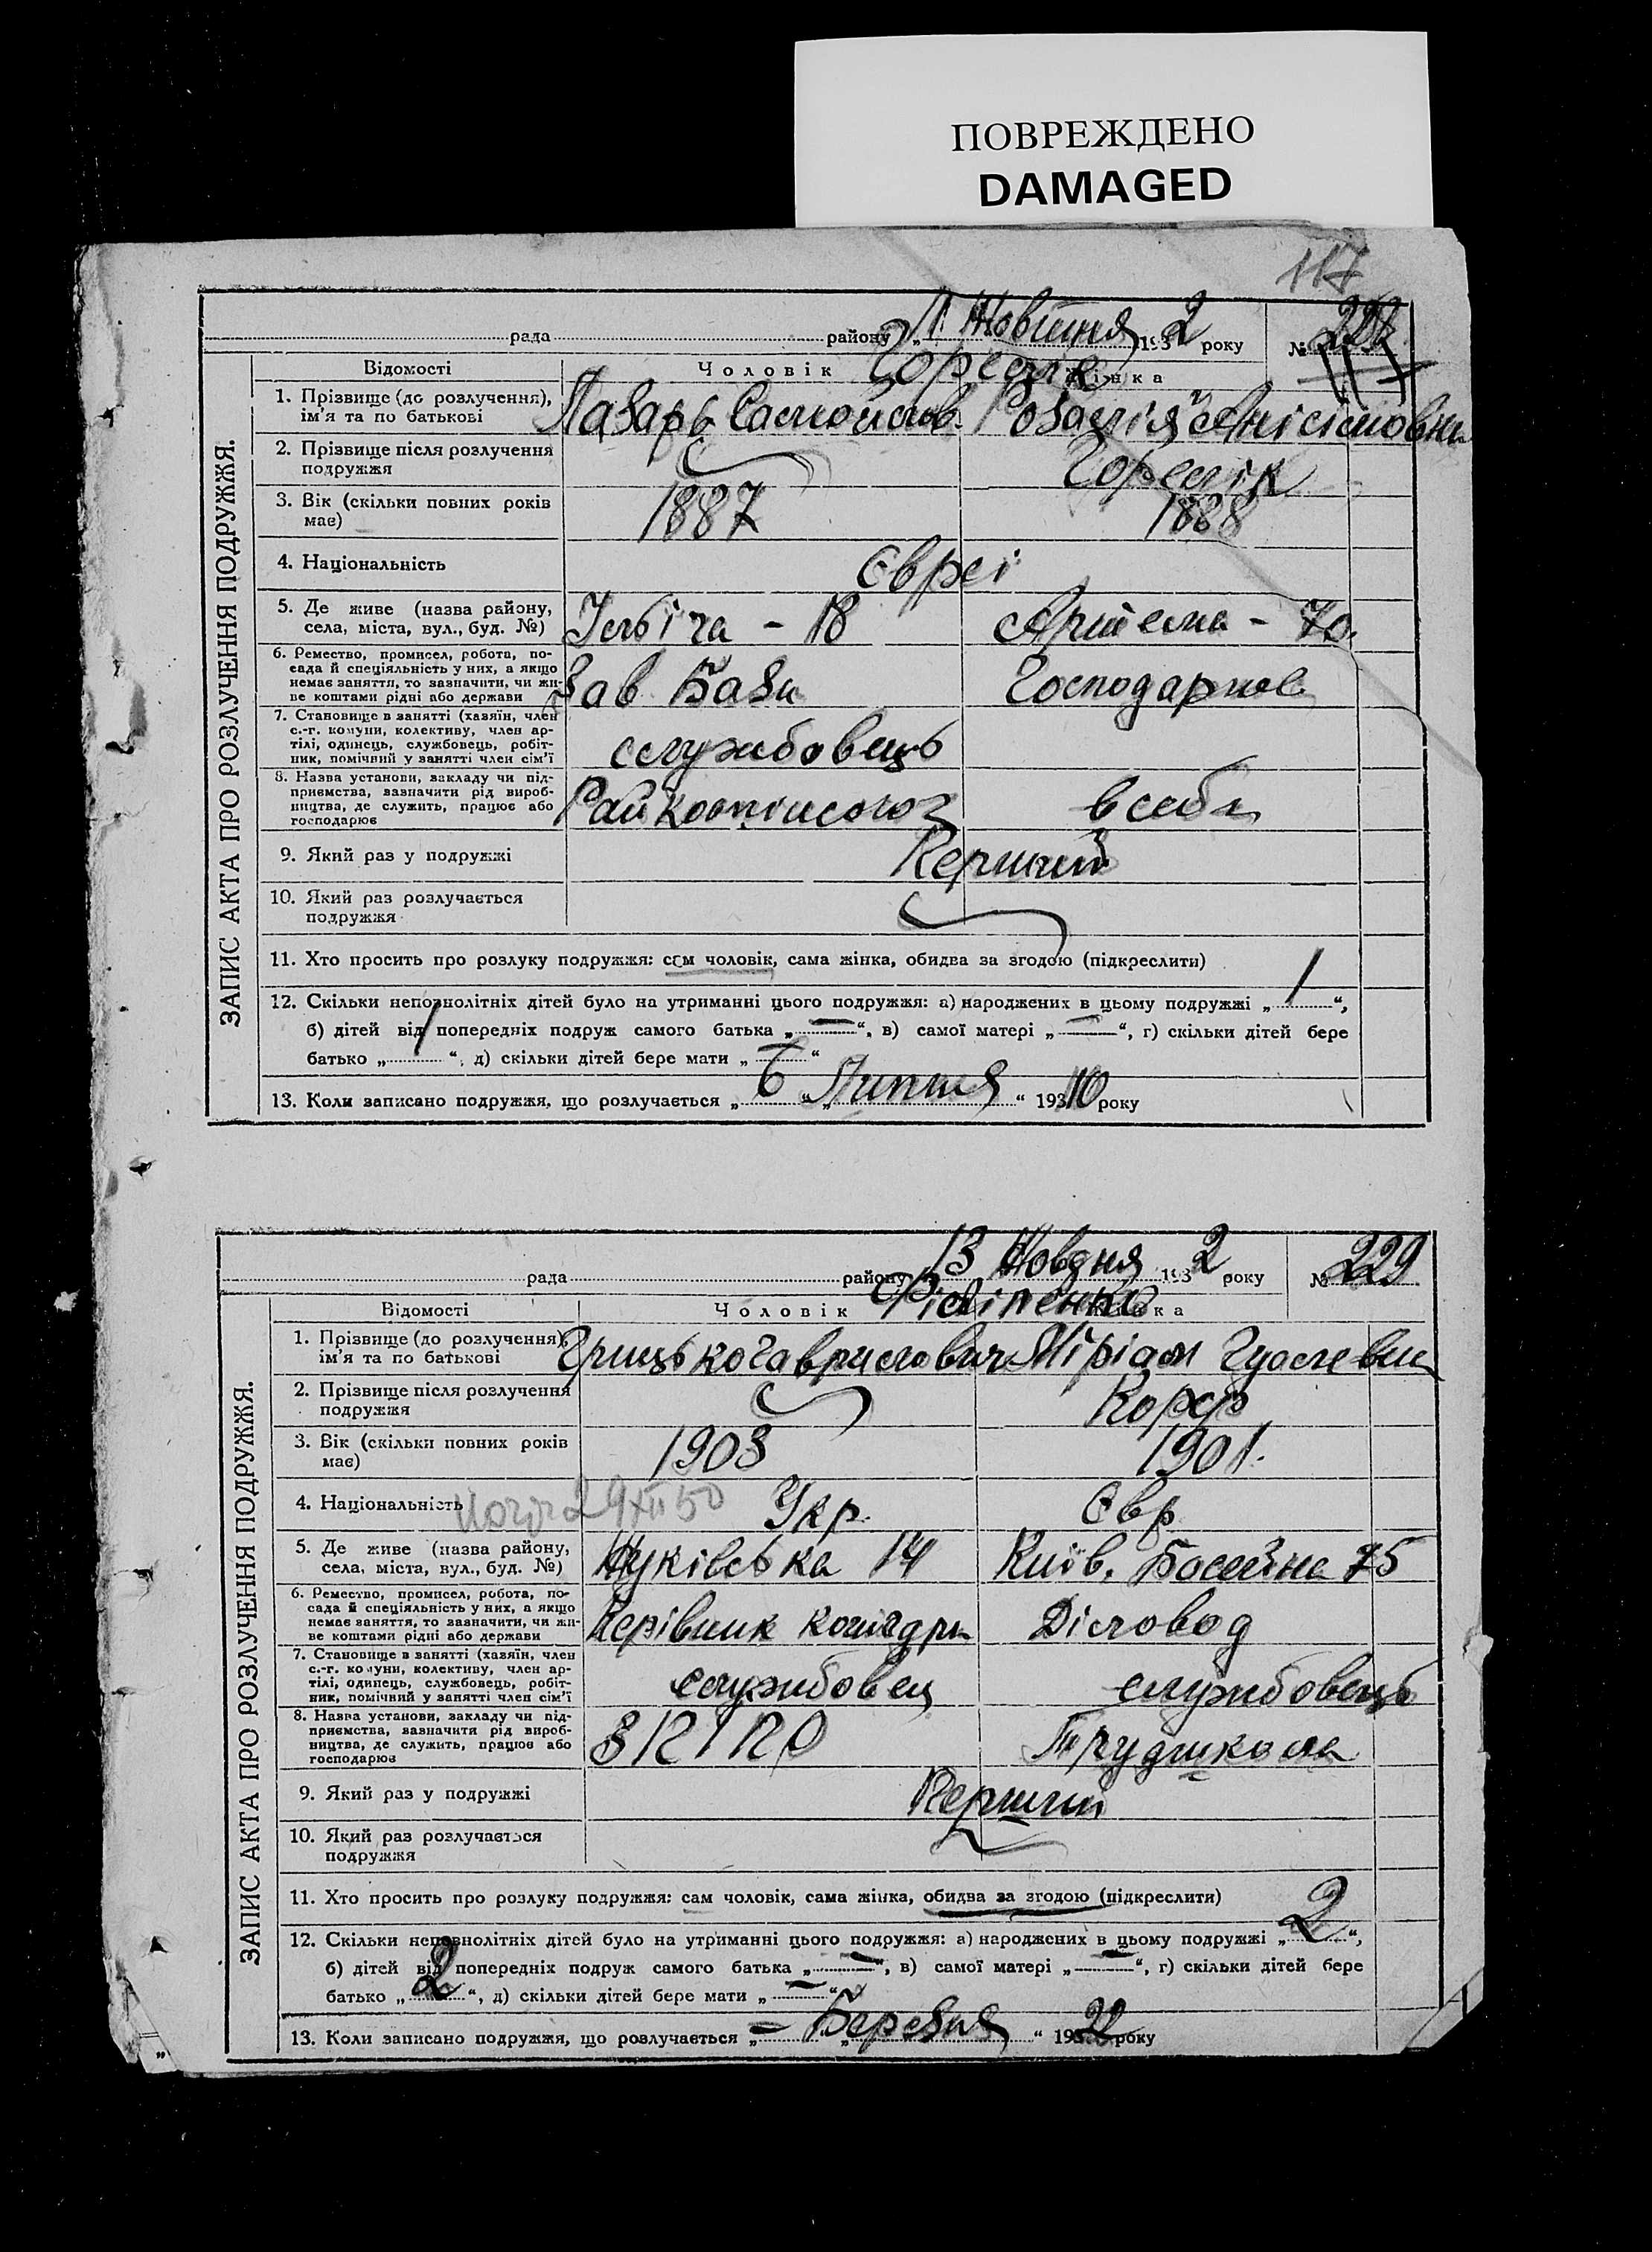 ПОВРЕЖДЕНО
DAMAGED
117
рада района „11 Жовтня 1932 року №
Відомості Чоловік Горелік Жінка
ЗАПИС АКТА ПРО РОЗЛУЧЕННЯ ПОДРУЖЖЯ.
1. Прізвище (до розлучення), ім'я та по батькові Лазарь Самойлов. Розалія Анісімовна
2. Прізвище після розлучення подружжя Горелік
3. Вік (скільки повних років має) 1887 1888
4. Національність Євреї
5. Де живе (назва району, села, міста, вул., буд. №) Ілліча - 18 Артема - 70.
6. Ремество, промисел, робота, по-
сада й спеціяльність у них, а якщо
немає заняття, то зазначити, чи жи-
ве коштами рідні або держави Зав Бази
7. Становище в занятті (хазяїн, член
с.-г. комуни, колективу, член ар-
тілі, одинець, службовець, робіт-
ник, помічний у занятті член сім'ї службовець
8. Назва установи, закладу чи під-
приємства, зазначити рід вироб-
ництва, де служить, працює або
господарює в себе
9. Який раз у подружжі Перший
10. Який раз розлучається подружжя
11. Хто просить про розлуку подружжя: сам чоловік, сама жінка, обидва за згодою (підкреслити)
12. Скільки неповнолітніх дітей було на утриманні цього подружжя: а) народжених в цьому подружжі „ 1 “,
б) дітей від попередніх подруж самого батька „ — “, в) самої матері „ — “, г) скільки дітей бере
батько „ 1 “, д) скільки дітей бере мати „ — “
13. Коли записано подружжя, що розлучається „ 6 “ „ Липня “ 1910 року
рада району 13 Жовтня 1932 року № 229
Відомості Чоловік Філіпенко Жінка
ЗАПИС АКТА ПРО РОЗЛУЧЕННЯ ПОДРУЖЖЯ.
1. Прізвище (до розлучення), ім'я та по батькові Грицько Гаврилович Міріам
2. Прізвище після розлучення подружжя Корф
3. Вік (скільки повних років має) 1903 1901.
4. Національність 29 XII 50 Укр. Євр
5. Де живе (назва району, села, міста, вул., буд. №) 14 Київ. Басейна 75
6. Ремество, промисел, робота, по-
сада й спеціяльність у них, а якщо
немає заняття, то зазначити, чи жи-
ве коштами рідні або держави Керівник катедри Діловод
7. Становище в занятті (хазяїн, член
с.-г. комуни, колективу, член ар-
тілі, одинець, службовець, робіт-
ник, помічний у занятті член сім'ї службовец службовець
8. Назва установи, закладу чи під-
приємства, зазначити рід вироб-
ництва, де служить, працює або
господарює Трудшкола
9. Який раз у подружжі Перший
10. Який раз розлучається подружжя
11. Хто просить про розлуку подружжя: сам чоловік, сама жінка, обидва за згодою (підкреслити)
12. Скільки неповнолітніх дітей було на утриманні цього подружжя: а) народжених в цьому подружжі „ 2 “,
б) дітей від попередніх подруж самого батька „ — “, в) самої матері „ — “, г) скільки дітей бере
батько „ 2 “, д) скільки дітей бере мати „ — “
13. Коли записано подружжя, що розлучається „ — “ „ Березня “ 1922 року